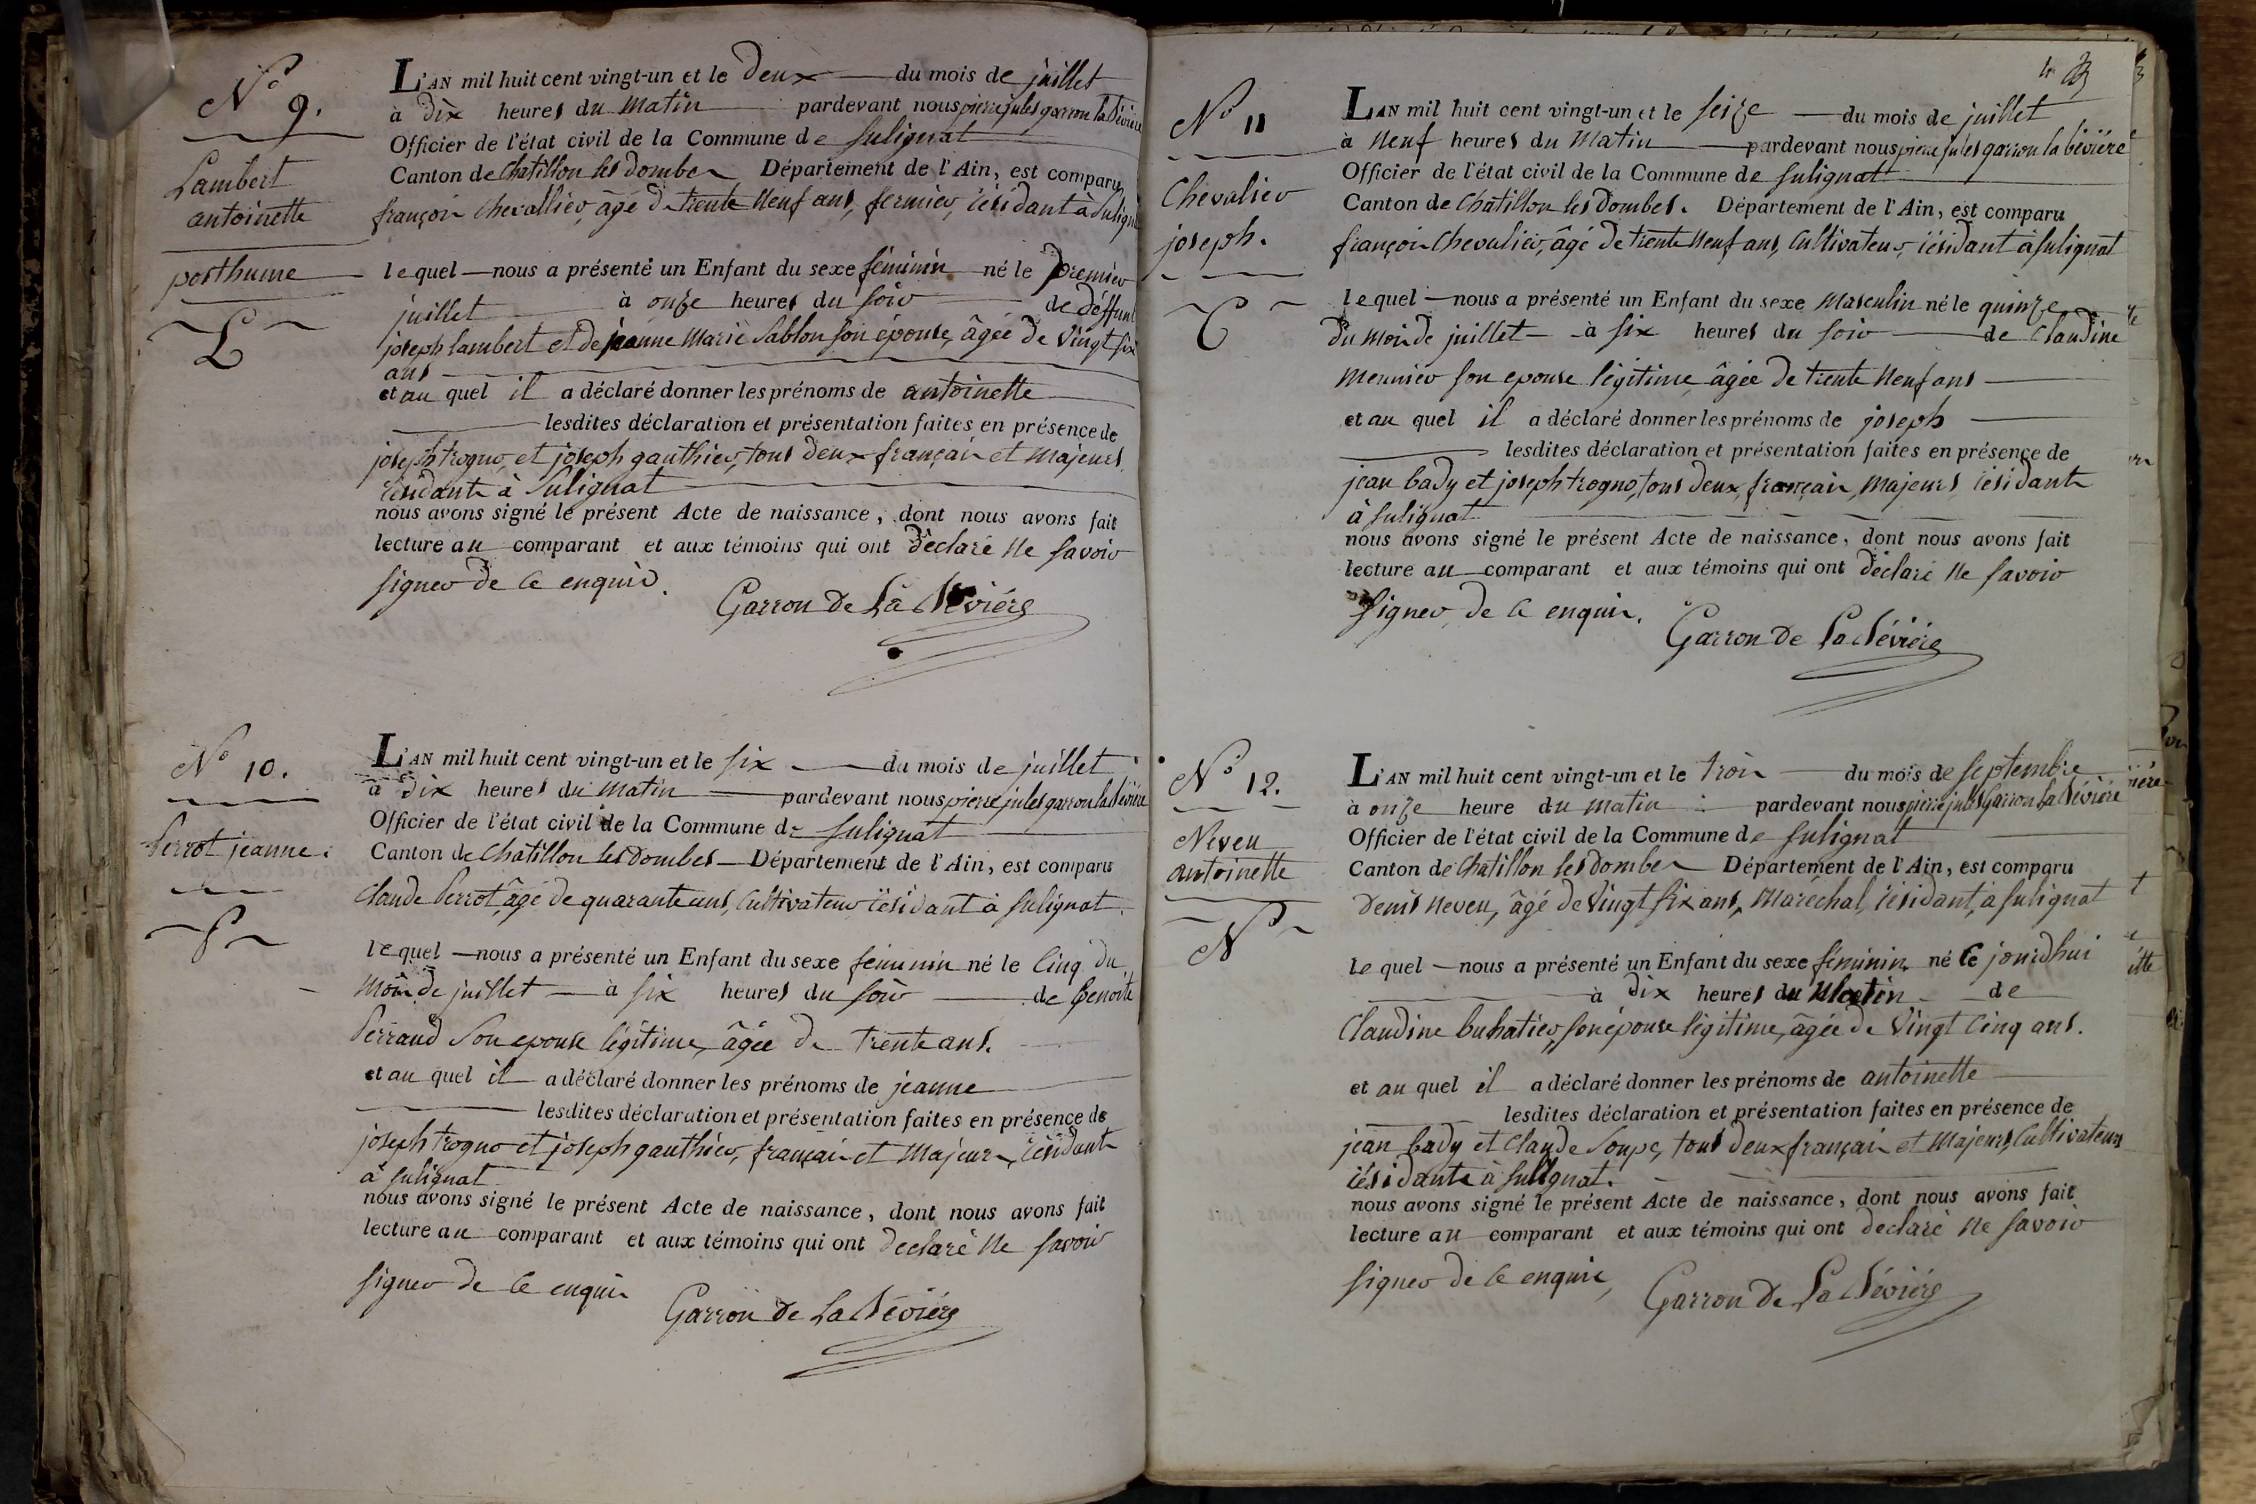 N° 9.
Lambert
antoinette
posthume
L
L'AN mil huit cent vingt-un et le deux du mois de juillet
à dix heures du matin pardevant nous pierre jules garron la bévière
Officier de l'état civil de la Commune de Sulignat
Canton de Chatillon les dombes Département de l'Ain, est comparu
françois chevallier, âgé de trente neuf ans, fermier, résidant à Sulignat
lequel nous a présenté un Enfant du sexe féminin né le premier
juillet à onze heures du soir de déffunt
joseph lambert et de jeanne Marie Sablon son épouse, âgée de vingt six
ans
et au quel il a déclaré donner les prénoms de antoinette
lesdites déclaration et présentation faites en présence de
joseph trogno, et joseph gauthier, tous deux français et majeurs
résidants à Sulignat
nous avons signé le présent Acte de naissance, dont nous avons fait
lecture au comparant et aux témoins qui ont déclaré ne savoir
signer de ce enquis.
Garron de La Bévière
N° 10.
Perrot jeanne.
P
L'AN mil huit cent vingt-un et le six du mois de juillet
à dix heures du matin pardevant nous pierre jules garron la bévière
Officier de l'état civil de la Commune de Sulignat
Canton de Chatillon les dombes Département de l'Ain, est comparu
Claude Perrot, âgé de quarante ans, Cultivateur résidant à Sulignat
lequel nous a présenté un Enfant du sexe féminin né le cinq du
mois de juillet à six heures du soir de Benoite
Perraud son epouse légitime, âgée de trente ans.
et au quel il a déclaré donner les prénoms de jeanne
lesdites déclaration et présentation faites en présence de
joseph trogno et joseph gauthier, français et majeurs, résidants
à Sulignat
nous avons signé le présent Acte de naissance, dont nous avons fait
lecture au comparant et aux témoins qui ont déclaré ne savoir
signer de ce enquis
Garron de La Bévière
N° 11
Chevalier
joseph.
C
L'AN mil huit cent vingt-un et le seize du mois de juillet
à neuf heures du matin pardevant nous pierre jules garron la bévière
Officier de l'état civil de la Commune de Sulignat
Canton de Chatillon les Dombes. Département de l'Ain, est comparu
françois Chevalier, âgé de trente neuf ans, Cultivateur, résidant à Sulignat
lequel nous a présenté un Enfant du sexe masculin né le quinze
du mois de juillet à six heures du soir de Claudine
Meunier son epouse légitime, âgée de trente neuf ans
et au quel il a déclaré donner les prénoms de joseph
lesdites déclaration et présentation faites en présence de
jean bady et joseph trogno, tous deux français, majeurs, résidants
à Sulignat
nous avons signé le présent Acte de naissance, dont nous avons fait
lecture au comparant et aux témoins qui ont déclaré ne savoir
signer, de ce enquis.
Garron de La Bévière
N° 12.
Neveu
antoinette
N
L'AN mil huit cent vingt-un et le trois du mois de septembre
à onze heure du matin pardevant nous pierre jules Garron La Bévière
Officier de l'état civil de la Commune de Sulignat
Canton de Chatillon les dombes Département de l'Ain, est comparu
Denis neveu, âgé de vingt six ans, Maréchal, résidant, à Sulignat
lequel nous a présenté un Enfant du sexe féminin né ce jourdhui
à dix heures du Matin de
Claudine buhatier, son épouse légitime, âgée de vingt cinq ans.
et au quel il a déclaré donner les prénoms de antoinette
lesdites déclaration et présentation faites en présence de
jean bady et Claude Soupe, tous deux français et majeurs, Cultivateurs
résidants à Sulignat.
nous avons signé le présent Acte de naissance, dont nous avons fait
lecture au comparant et aux témoins qui ont déclaré ne savoir
signer de ce enquis,
Garron de La Bévière